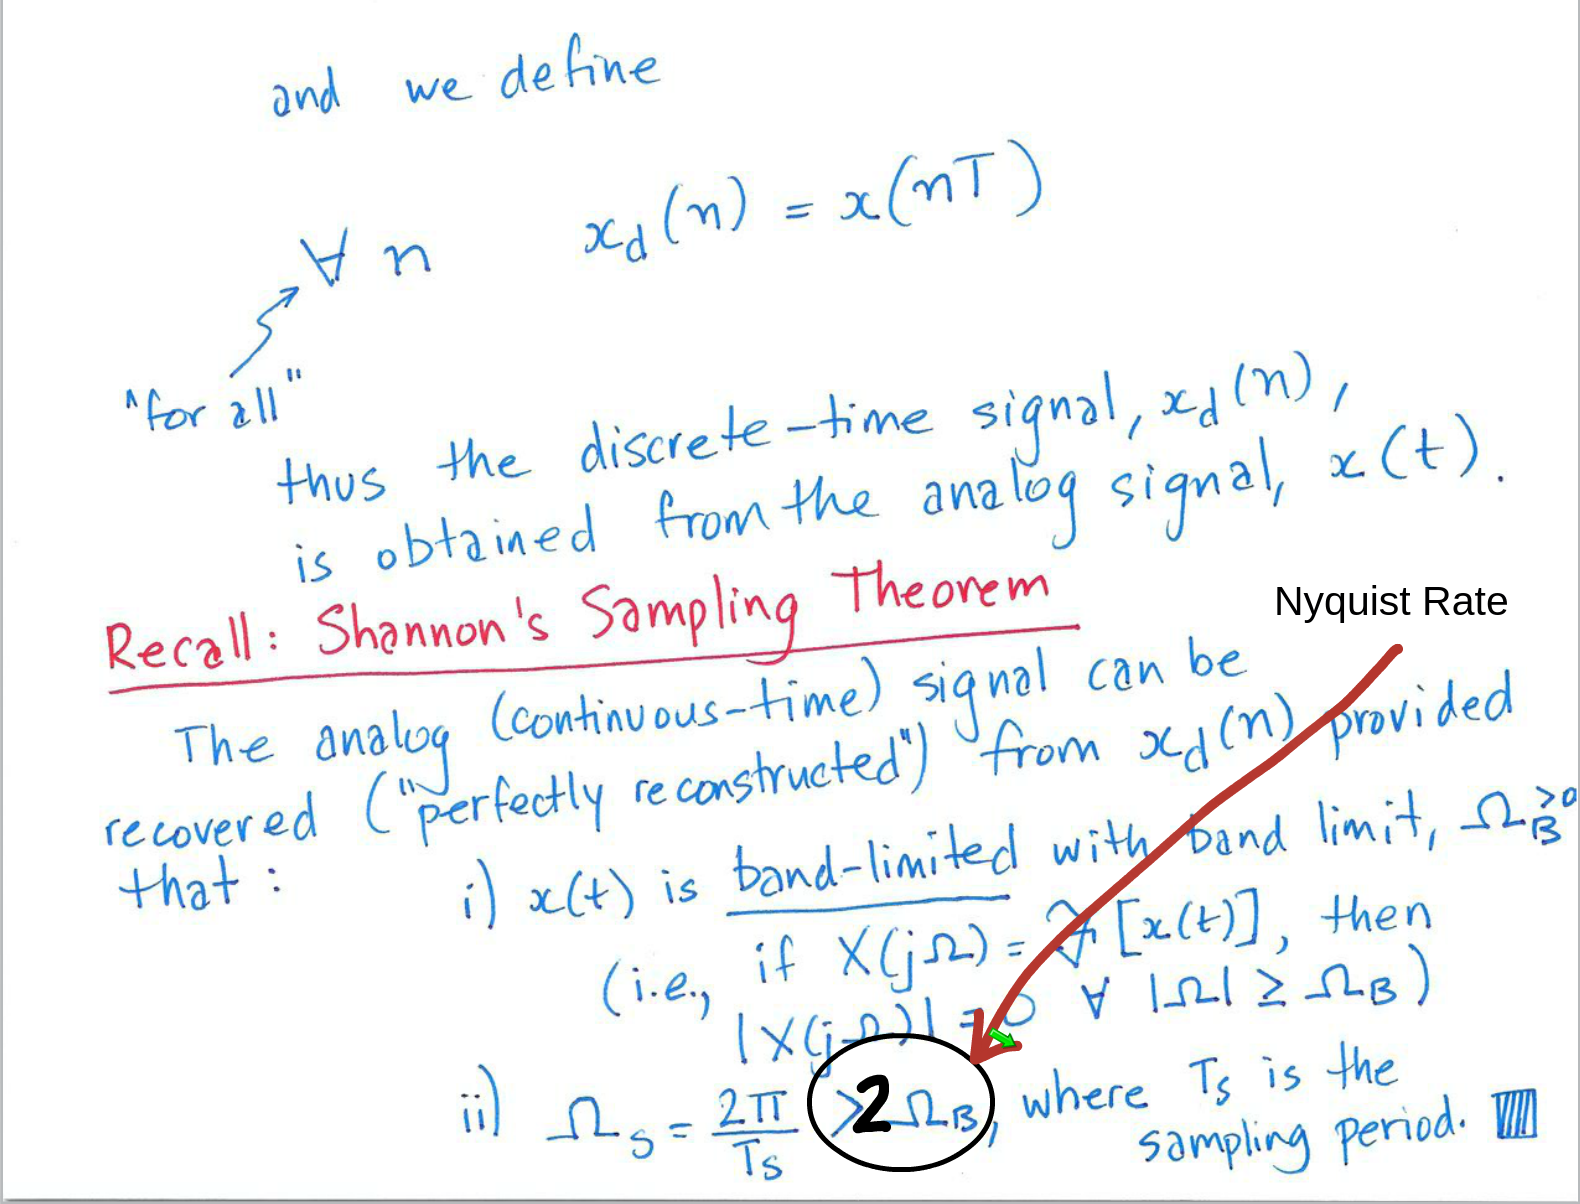 and we define
∀ n x_d(n) = x(nT)
"for all"
thus the discrete-time signal, x_d(n),
is obtained from the analog signal, x(t).
Recall: Shannon's Sampling Theorem
Nyquist Rate
The analog (continuous-time) signal can be
recovered ("perfectly reconstructed") from x_d(n) provided
that: i) x(t) is band-limited with band limit, Ω_B>0
(i.e., if X(jΩ) = ℱ[x(t)], then
|X(jΩ)| = 0 ∀ |Ω| ≥ Ω_B)
ii) Ω_s = 2π/T_s > 2Ω_B, where T_s is the
sampling period.